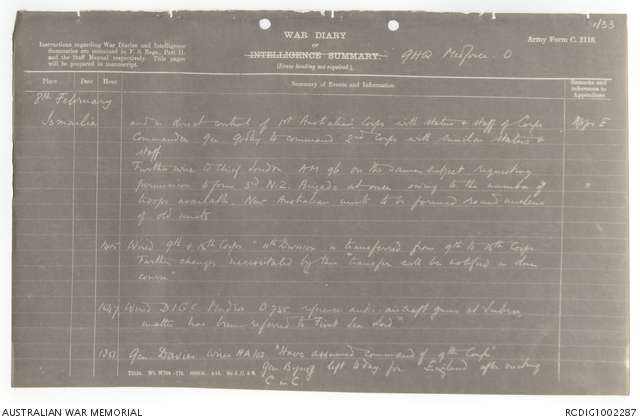 1/33
Army Form C. 2118.
WAR DIARY
or
INTELLIGENCE SUMMARY.
(Erase heading not required.)
GHQ Medforce O
Instructions regarding War Diaries and Intelligence
Summaries are contained in F. S. Regs., Part II.
and the Staff Manual respectively. Title pages
will be prepared in manuscript.
Place
Date
Hour
Summary of Events and Information
Remarks and
references to
Appendices
8th February
Ismailia
and in direct control of 1st Australian Corps with status & staff of Corps
Commander Gen Godley to command 2nd Corps with similar status &
staff
Further wire to Chief London AM 96 on the same subject requesting
permission to form 3rd N.Z. Brigade at once owing to the number of
troops available. New Australian units to be formed round nucleus
of old units
Wired 9th & 15th Corps "11th Division is transferred from 9th to 15th Corps
Further changes necessitated by this transfer will be notified in due
course"
Wired DIGC Mudros O 735 reference anti-aircraft guns at Imbros
matter has been referred to First Sea Lord"
Gen. Davies wires HA102 "Have assumed command of 9th Corps"
Gen Byng left today for England after seeing
C in C
AUSTRALIAN WAR MEMORIAL
RCDIG1002287